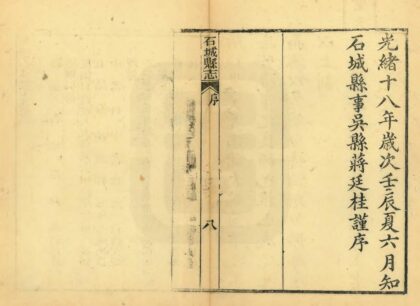 光緒十八年歲次壬辰夏六月知
石城縣事吳縣蔣廷桂謹序
石城縣志
序
八